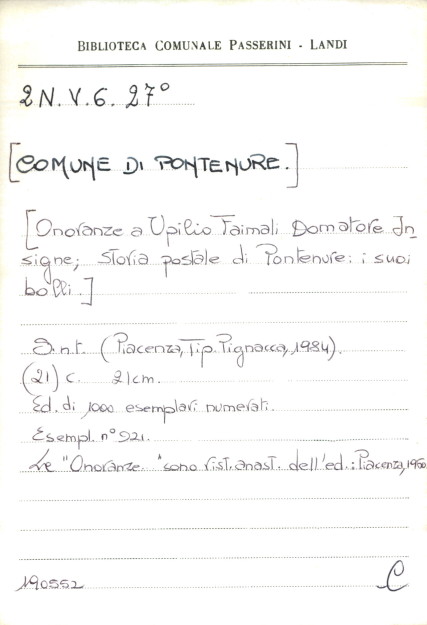 BIBLIOTECA COMUNALE PASSERINI - LANDI
2 N. V. 6. 27°
[COMUNE DI PONTENURE.]
[Onoranze a Upilio Faimali Domatore In
signe; Storia postale di Pontenure: i suoi
bolli.]
S.n.t. (Piacenza, Tip. Pignacca, 1984).
(21) c. 21 cm.
Ed. di 1000 esemplari numerati.
Esempl. n° 921.
Le "Onoranze" sono rist. anast. dell'ed.: Piacenza,
190552 C